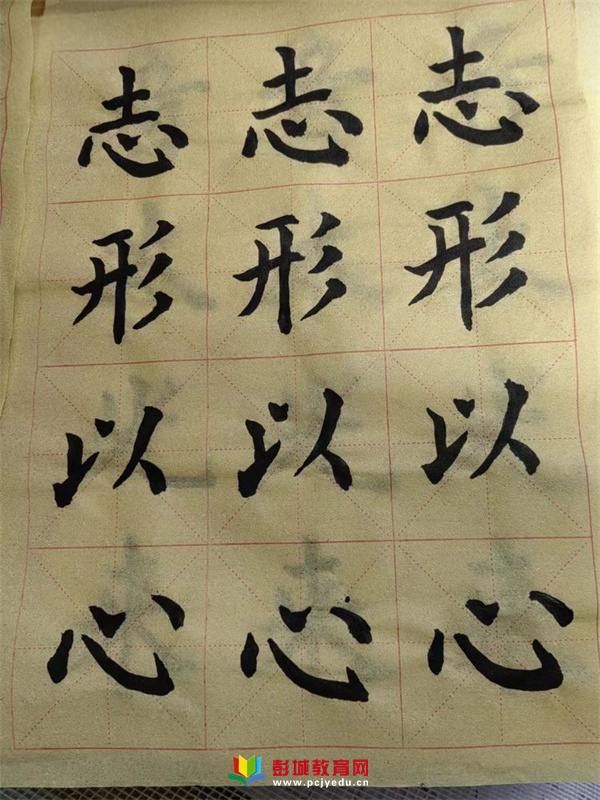 志志志
形形形
以以以
心心心
彭城教育网
www.pcjyedu.cn